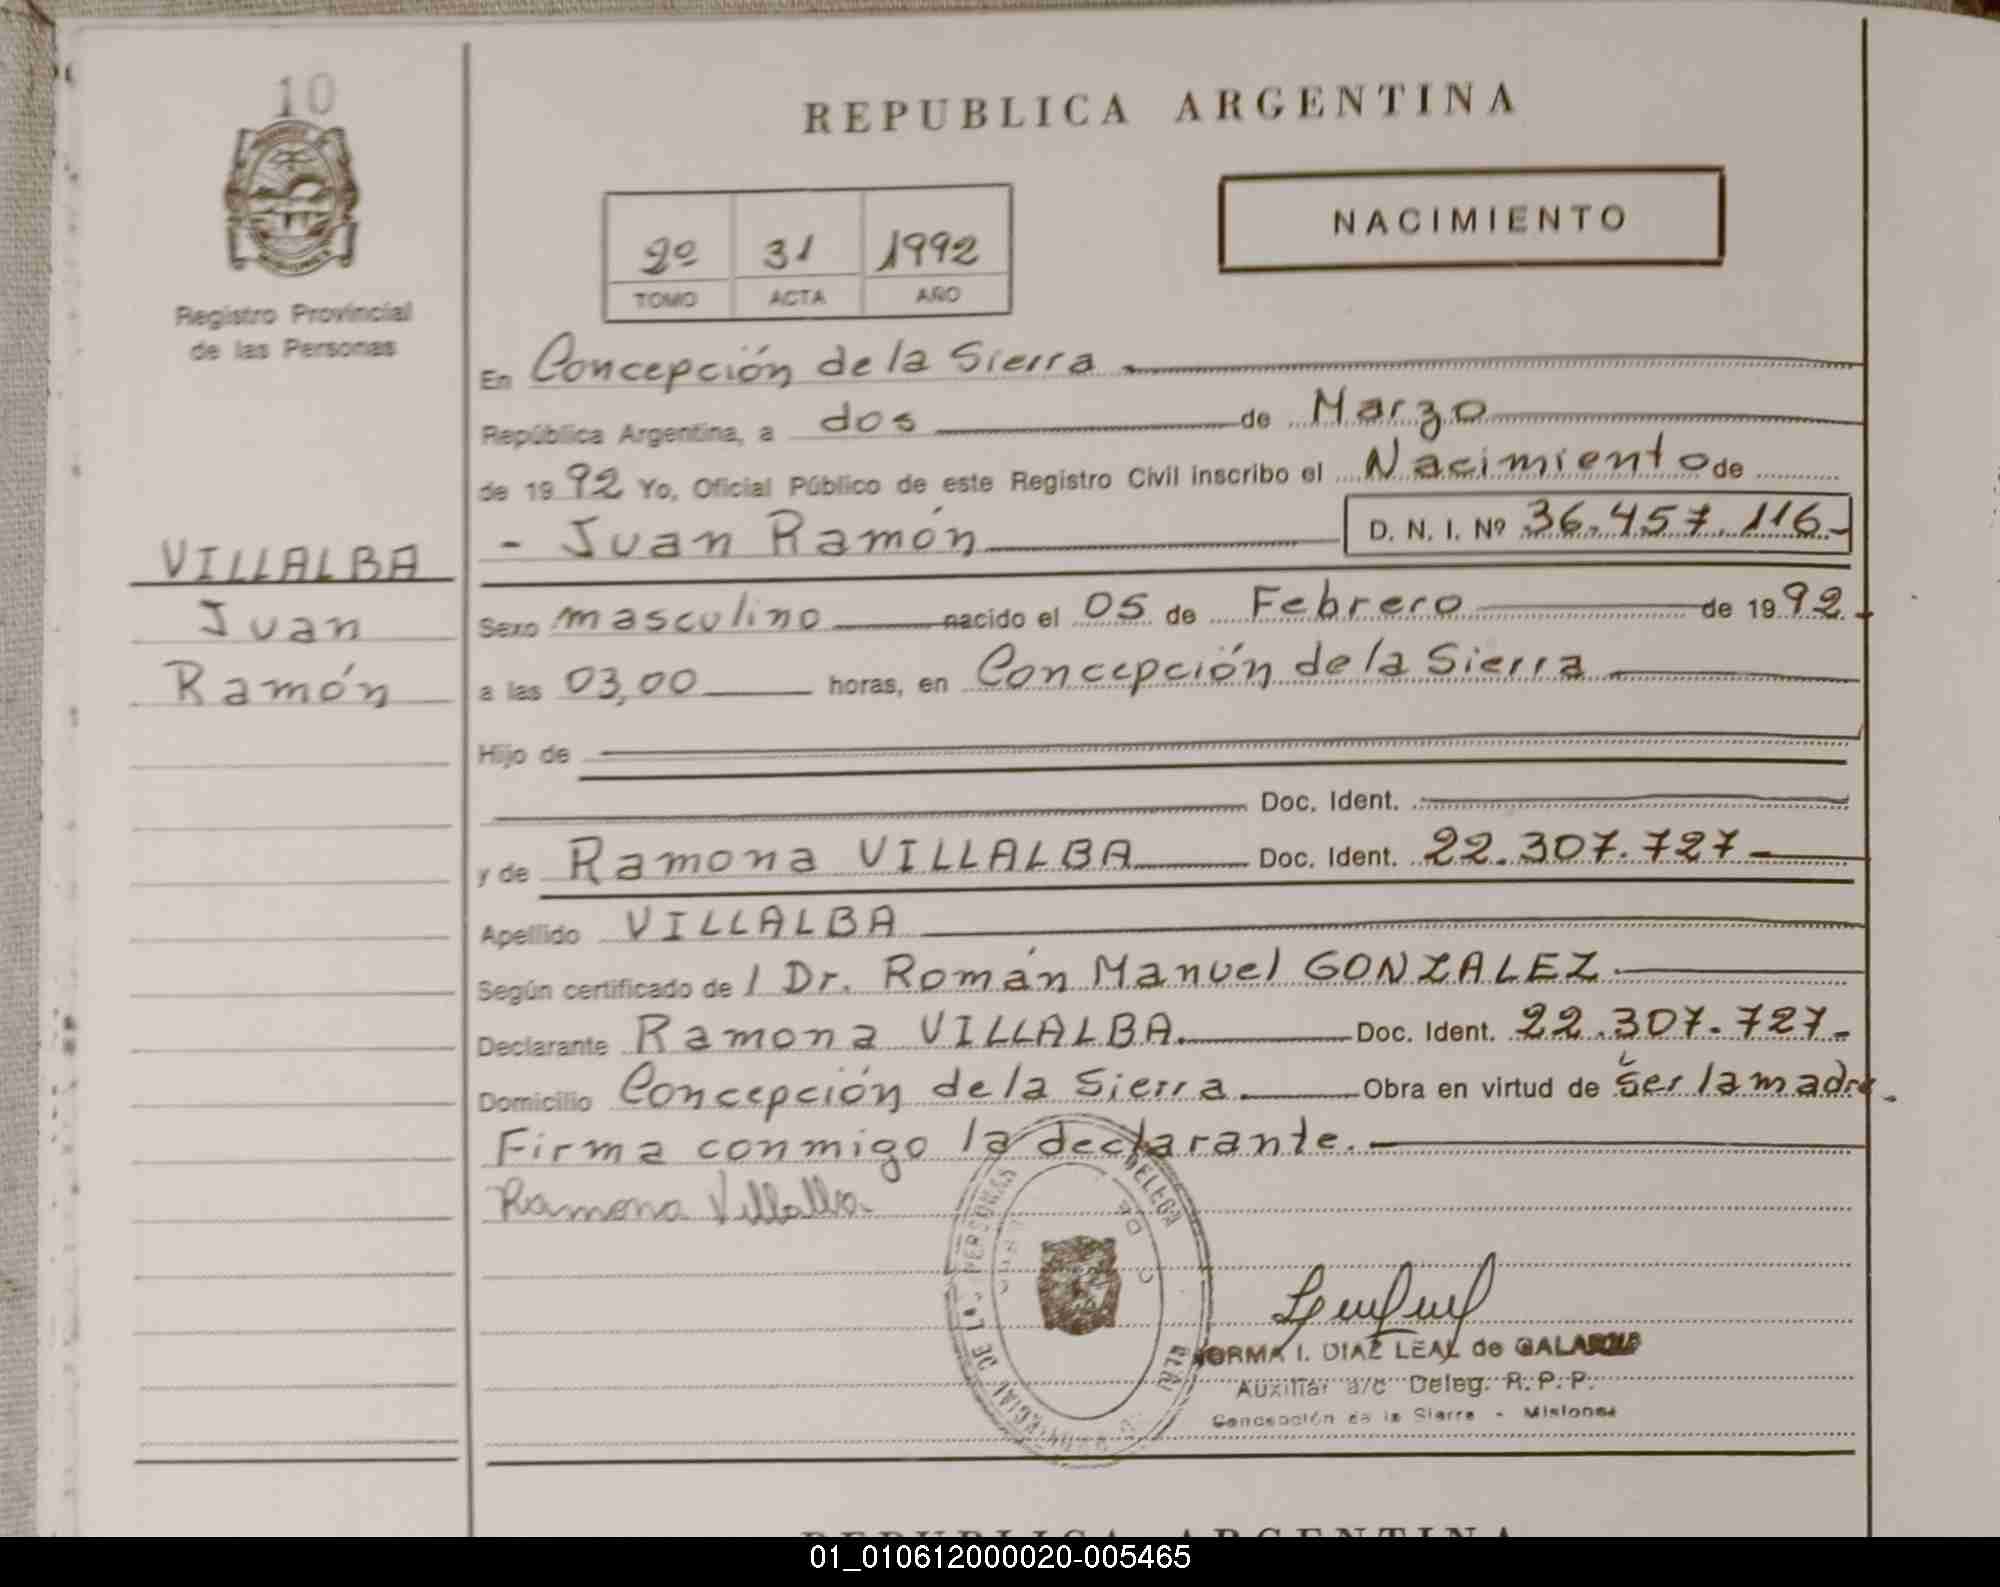 10
Registro Provincial
de las Personas
VILLALBA
Juan
Ramón
REPUBLICA ARGENTINA
2º 31 1992
TOMO ACTA AÑO
NACIMIENTO
En Concepción de la Sierra
República Argentina, a dos de Marzo
de 1992 Yo, Oficial Público de este Registro Civil inscribo el Nacimiento de
- Juan Ramón D. N. I. Nº 36.457.116-
Sexo masculino nacido el 05 de Febrero de 1992.
a las 03,00 horas, en Concepción de la Sierra
Hijo de
Doc. Ident.
y de Ramona VILLALBA Doc. Ident. 22.307.727-
Apellido VILLALBA
Según certificado de l Dr. Román Manuel GONZALEZ
Declarante Ramona VILLALBA. Doc. Ident. 22.307.727-
Domicilio Concepción de la Sierra. Obra en virtud de ser la madre.
Firma conmigo la declarante.
Ramona Villalba
NORMA I. DIAZ LEAL de
Auxiliar a/c Deleg. R. P. P.
Concepción de la Sierra - Misiones
REPUBLICA ARGENTINA
01_010612000020-005465